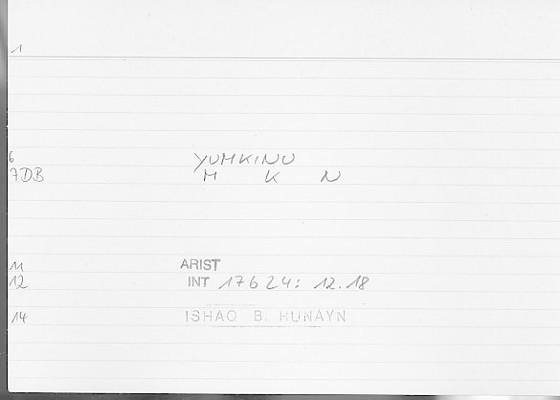 1
6 YUMKINU
7DB M K N
11 ARIST
12 INT 17624: 12.18
14 ISHAQ B. HUNAYN